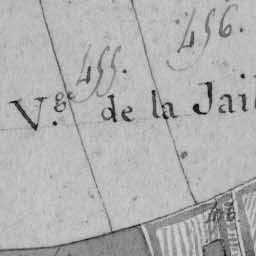 456.
455.
V.ge de la Jail